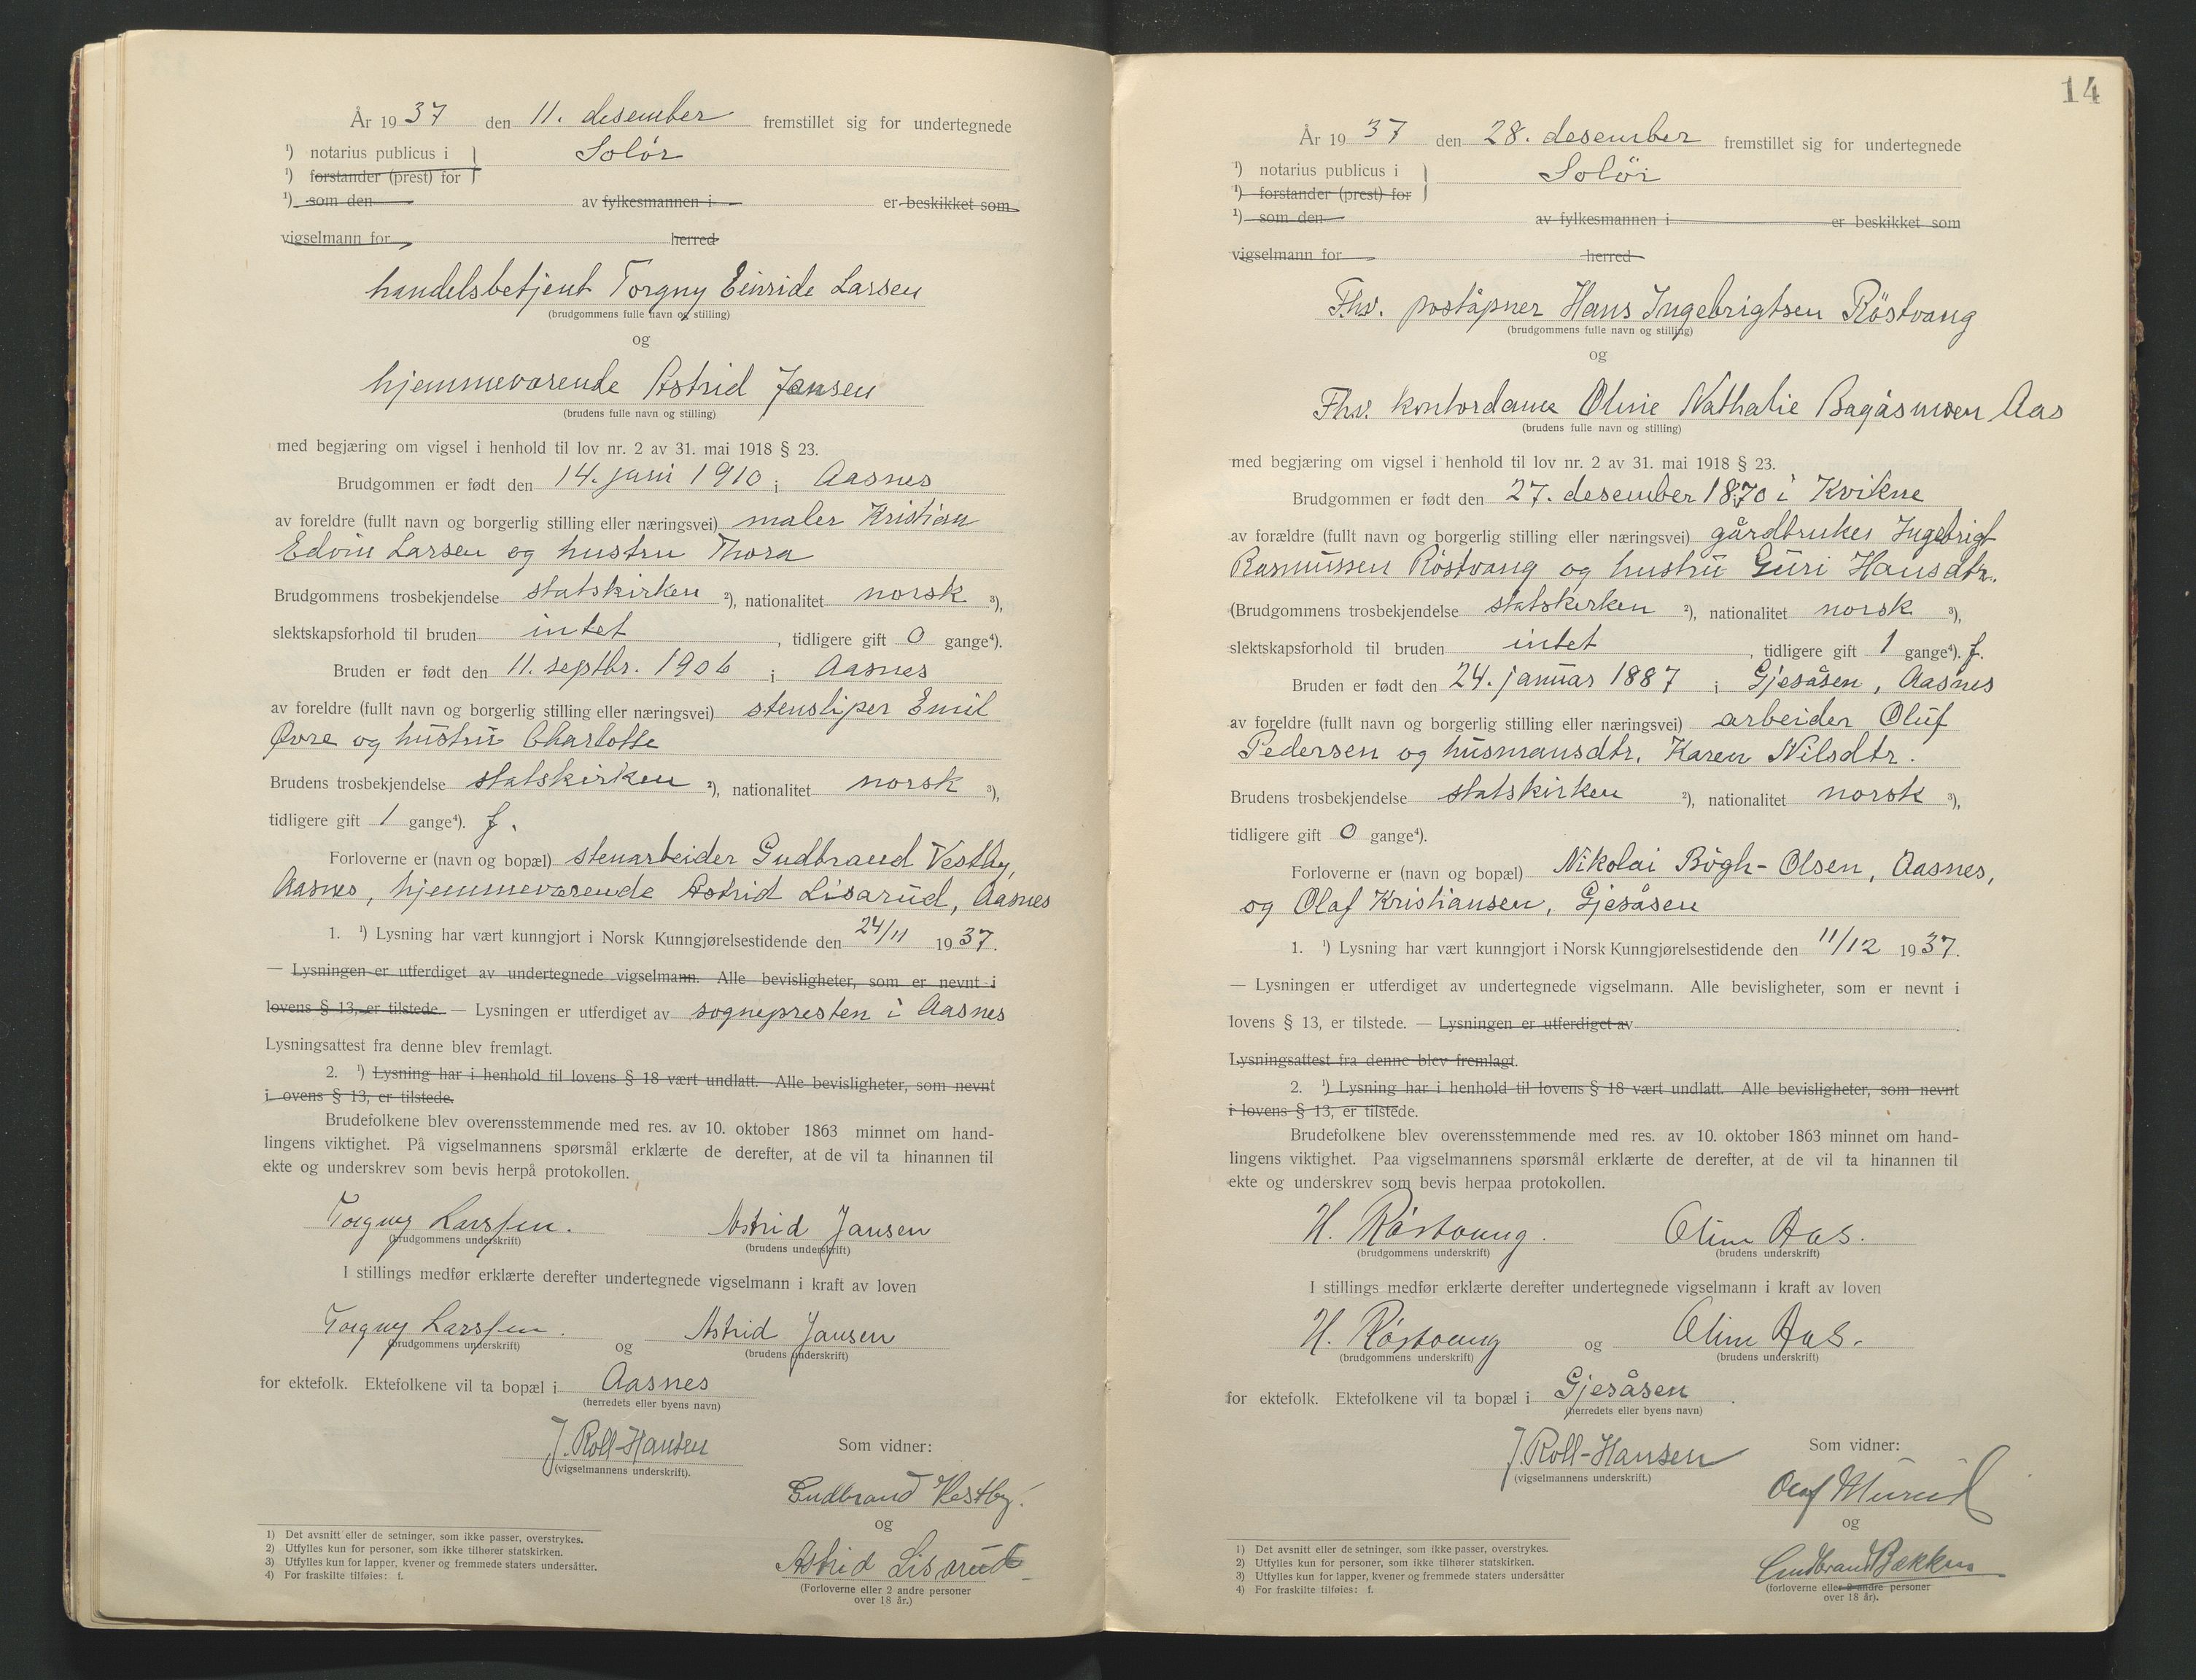 År 1937 den 11. desember fremstillet sig for undertegnede
¹) notarius publicus i Solör
¹) forstander (prest) for
¹) som den av fylkesmannen i er beskikket som
vigselmann for herred
handelsbetjent Torgny Einride Larsen
(brudgommens fulle navn og stilling)
og
hjemmeværende Astrid Jansen
(brudens fulle navn og stilling)
med begjæring om vigsel i henhold til lov nr. 2 av 31. mai 1918 § 23.
Brudgommen er født den 14. juni 1910 i Aasnes
av foreldre (fullt navn og borgerlig stilling eller næringsvei) maler Kristian
Edvin Larsen og hustru Thora
Brudgommens trosbekjendelse statskirken ²), nationalitet norsk ³),
slektskapsforhold til bruden intet, tidligere gift 0 gange⁴).
Bruden er født den 11. septbr. 1906 i Aasnes
av foreldre (fullt navn og borgerlig stilling eller næringsvei) stensliper Emil
Øvre og hustru Charlotte
Brudens trosbekjendelse statskirken ²), nationalitet norsk ³),
tidligere gift 1 gange⁴). f.
Forloverne er (navn og bopæl) stenarbeider Gudbrand Vestby,
Aasnes, hjemmeværende Astrid Lisarud, Aasnes
1. ¹) Lysning har vært kunngjort i Norsk Kunngjørelsestidende den 24/11 1937.
— Lysningen er utferdiget av undertegnede vigselmann. Alle bevisligheter, som er nevnt i
lovens § 13, er tilstede. — Lysningen er utferdiget av sognepresten i Aasnes
Lysningsattest fra denne blev fremlagt.
2. ¹) Lysning har i henhold til lovens § 18 vært undlatt. Alle bevisligheter, som nevnt
i ovens § 13, er tilstede.
Brudefolkene blev overensstemmende med res. av 10. oktober 1863 minnet om hand-
lingens viktighet. På vigselmannens spørsmål erklærte de derefter, at de vil ta hinannen til
ekte og underskrev som bevis herpå protokollen.
Torgny Larssen. Astrid Jansen
(brudgommens underskrift) (brudens underskrift)
I stillings medfør erklærte derefter undertegnede vigselmann i kraft av loven
Torgny Larssen. og Astrid Jansen
(brudgommens underskrift) (brudens underskrift)
for ektefolk. Ektefolkene vil ta bopæl i Aasnes
(herredets eller byens navn)
J. Roll-Hansen Som vidner:
(vigselmannens underskrift).
Gudbrand Vestby.
og
Astrid Lisarud
(Forloverne eller 2 andre personer
over 18 år.)
1) Det avsnitt eller de setninger, som ikke passer, overstrykes.
2) Utfylles kun for personer, som ikke tilhører statskirken.
3) Utfylles kun for lapper, kvener og fremmede staters undersåtter.
4) For fraskilte tilføies: f.
14
År 1937 den 28. desember fremstillet sig for undertegnede
¹) notarius publicus i Solör
¹) forstander (prest) for
¹) som den av fylkesmannen i er beskikket som
vigselmann for herred
Fhv. poståpner Hans Ingebrigtsen Röstvang
(brudgommens fulle navn og stilling)
og
Fhv. kontordame Oline Nathalie Bagåsmoen Aas
(brudens fulle navn og stilling)
med begjæring om vigsel i henhold til lov nr. 2 av 31. mai 1918 § 23.
Brudgommen er født den 27. desember 1870 i Kvikne
av forældre (fullt navn og borgerlig stilling eller næringsvei) gårdbruker Ingebrigt
Rasmussen Röstvang og hustru Guri Hansdtr.
(Brudgommens trosbekjendelse statskirken ²), nationalitet norsk ³),
slektskapsforhold til bruden intet, tidligere gift 1 gange⁴). f.
Bruden er født den 24. januar 1887 i Gjesåsen, Aasnes
av foreldre (fullt navn og borgerlig stilling eller næringsvei) arbeider Oluf
Pedersen og husmansdtr. Karen Nilsdtr.
Brudens trosbekjendelse statskirken ²), nationalitet norsk ³),
tidligere gift 0 gange⁴).
Forloverne er (navn og bopæl) Nikolai Bögh-Olsen, Aasnes,
og Olaf Kristiansen, Gjesåsen
1. ¹) Lysning har vært kunngjort i Norsk Kunngjørelsestidende den 11/12 1937.
— Lysningen er utferdiget av undertegnede vigselmann. Alle bevisligheter, som er nevnt i
lovens § 13, er tilstede. — Lysningen er utferdiget av
Lysningsattest fra denne blev fremlagt.
2. ¹) Lysning har i henhold til lovens § 18 vært undlatt. Alle bevisligheter, som nevnt
i lovens § 13, er tilstede.
Brudefolkene blev overensstemmende med res. av 10. oktober 1863 minnet om hand-
lingens viktighet. Paa vigselmannens spørsmål erklærte de derefter, at de vil ta hinannen til
ekte og underskrev som bevis herpaa protokollen.
H. Röstvang. Oline Aas.
(brudgommens underskrift) (brudens underskrift)
I stillings medfør erklærte derefter undertegnede vigselmann i kraft av loven
H. Röstvang og Oline Aas.
(brudgommens underskrift) (brudens underskrift)
for ektefolk. Ektefolkene vil ta bopæl i Gjesåsen
(herredets eller byens navn)
J. Roll-Hansen Som vidner:
(vigselmannens underskrift.)
Olaf
og
Gudbrand Bækken
(forloverne eller 2 andre personer
over 18 år).
1) Det avsnitt eller de setninger, som ikke passer, overstrykes.
2) Utfylles kun for personer, som ikke tilhører statskirken.
3) Utfylles kun for lapper, kvener og fremmede staters undersåtter
4) For fraskilte tilføies: f.